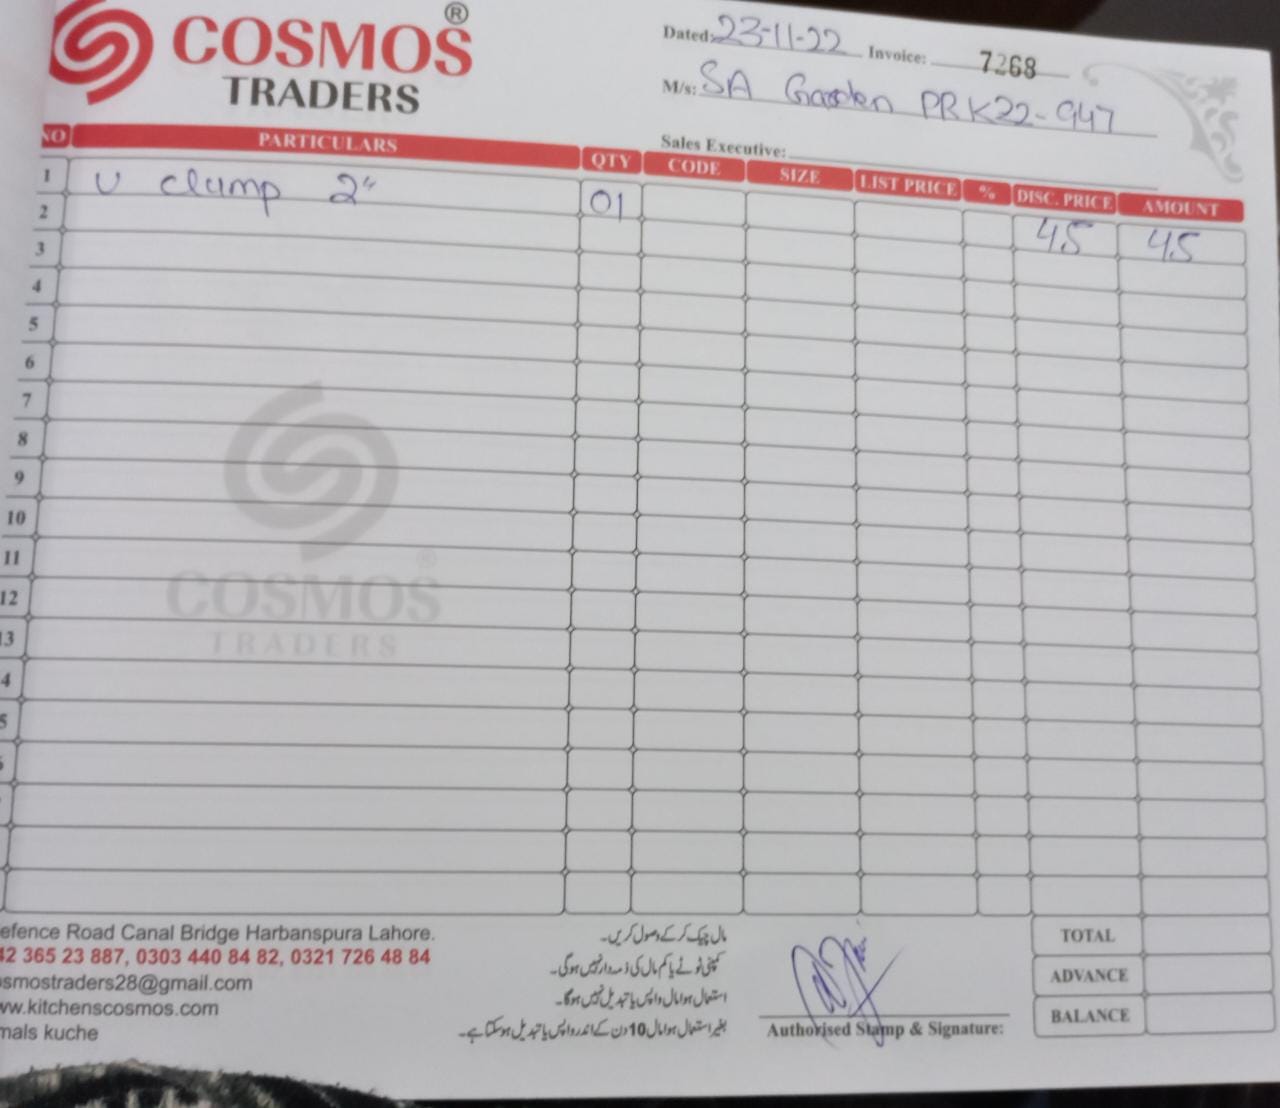 COSMOS ®
TRADERS
Dated: 23-11-22 Invoice: 7268
M/s: SA Garden PRK22-947
Sales Executive:
NO PARTICULARS QTY CODE SIZE LIST PRICE % DISC. PRICE AMOUNT
1 U clump 2" 01 45 45
2
3
4
5
6
7
8
9
10
11
12
13
4
5
COSMOS ®
TRADERS
efence Road Canal Bridge Harbanspura Lahore.
42 365 23 887, 0303 440 84 82, 0321 726 48 84
osmostraders28@gmail.com
ww.kitchenscosmos.com
mals kuche
مال چیک کر کے وصول کریں۔
کمپنی ٹوٹے یا کم مال کی ذمہ دار نہیں ہوگی۔
استعمال ہوا مال واپس یا تبدیل نہیں ہوگا۔
بغیر استعمال ہوا مال 10 دن کے اندر واپس یا تبدیل ہو سکتا ہے۔
Authorised Stamp & Signature:
TOTAL
ADVANCE
BALANCE